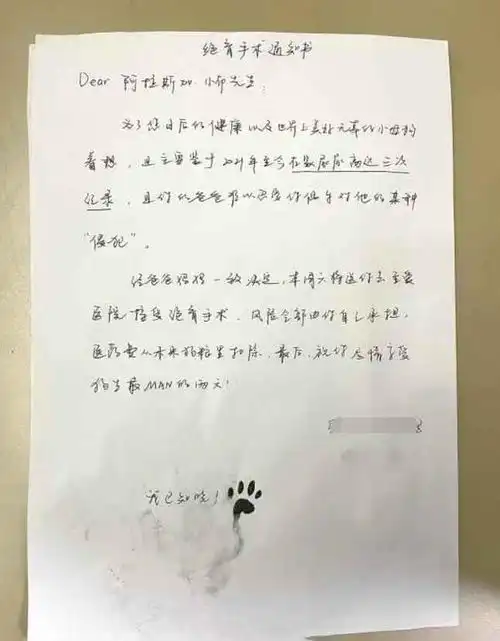 绝育手术通知书
Dear 阿拉斯加 小郁先生:
为了您日后的健康以及世界上美好无辜的小母狗
着想,也主要鉴于2021年至今在家尿尿高达三次
纪录,且你的爸爸难以忍受你偶尔对他的某种
“侵犯”。
经爸爸妈妈一致决定,本周六将送你去至爱
医院接受绝育手术,风险全部由你自己承担,
医药费从未来狗粮里扣除,最后,祝你尽情享受
狗生最MAN的两天!
我已知晓!